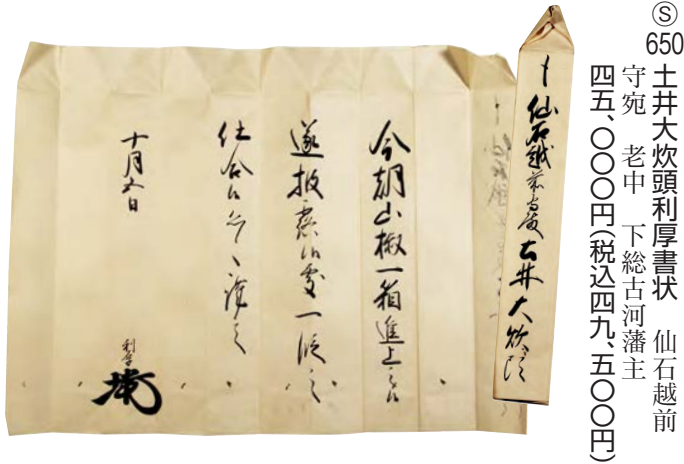 Ⓢ
650
土井大炊頭利厚書状　仙石越前
守宛　老中　下総古河藩主
四五、〇〇〇円(税込四九、五〇〇円)
仙石越前守殿 土井大炊頭
今朝山椒一箱進上之
遂披露候處一段之
仕合候
十月五日
利厚